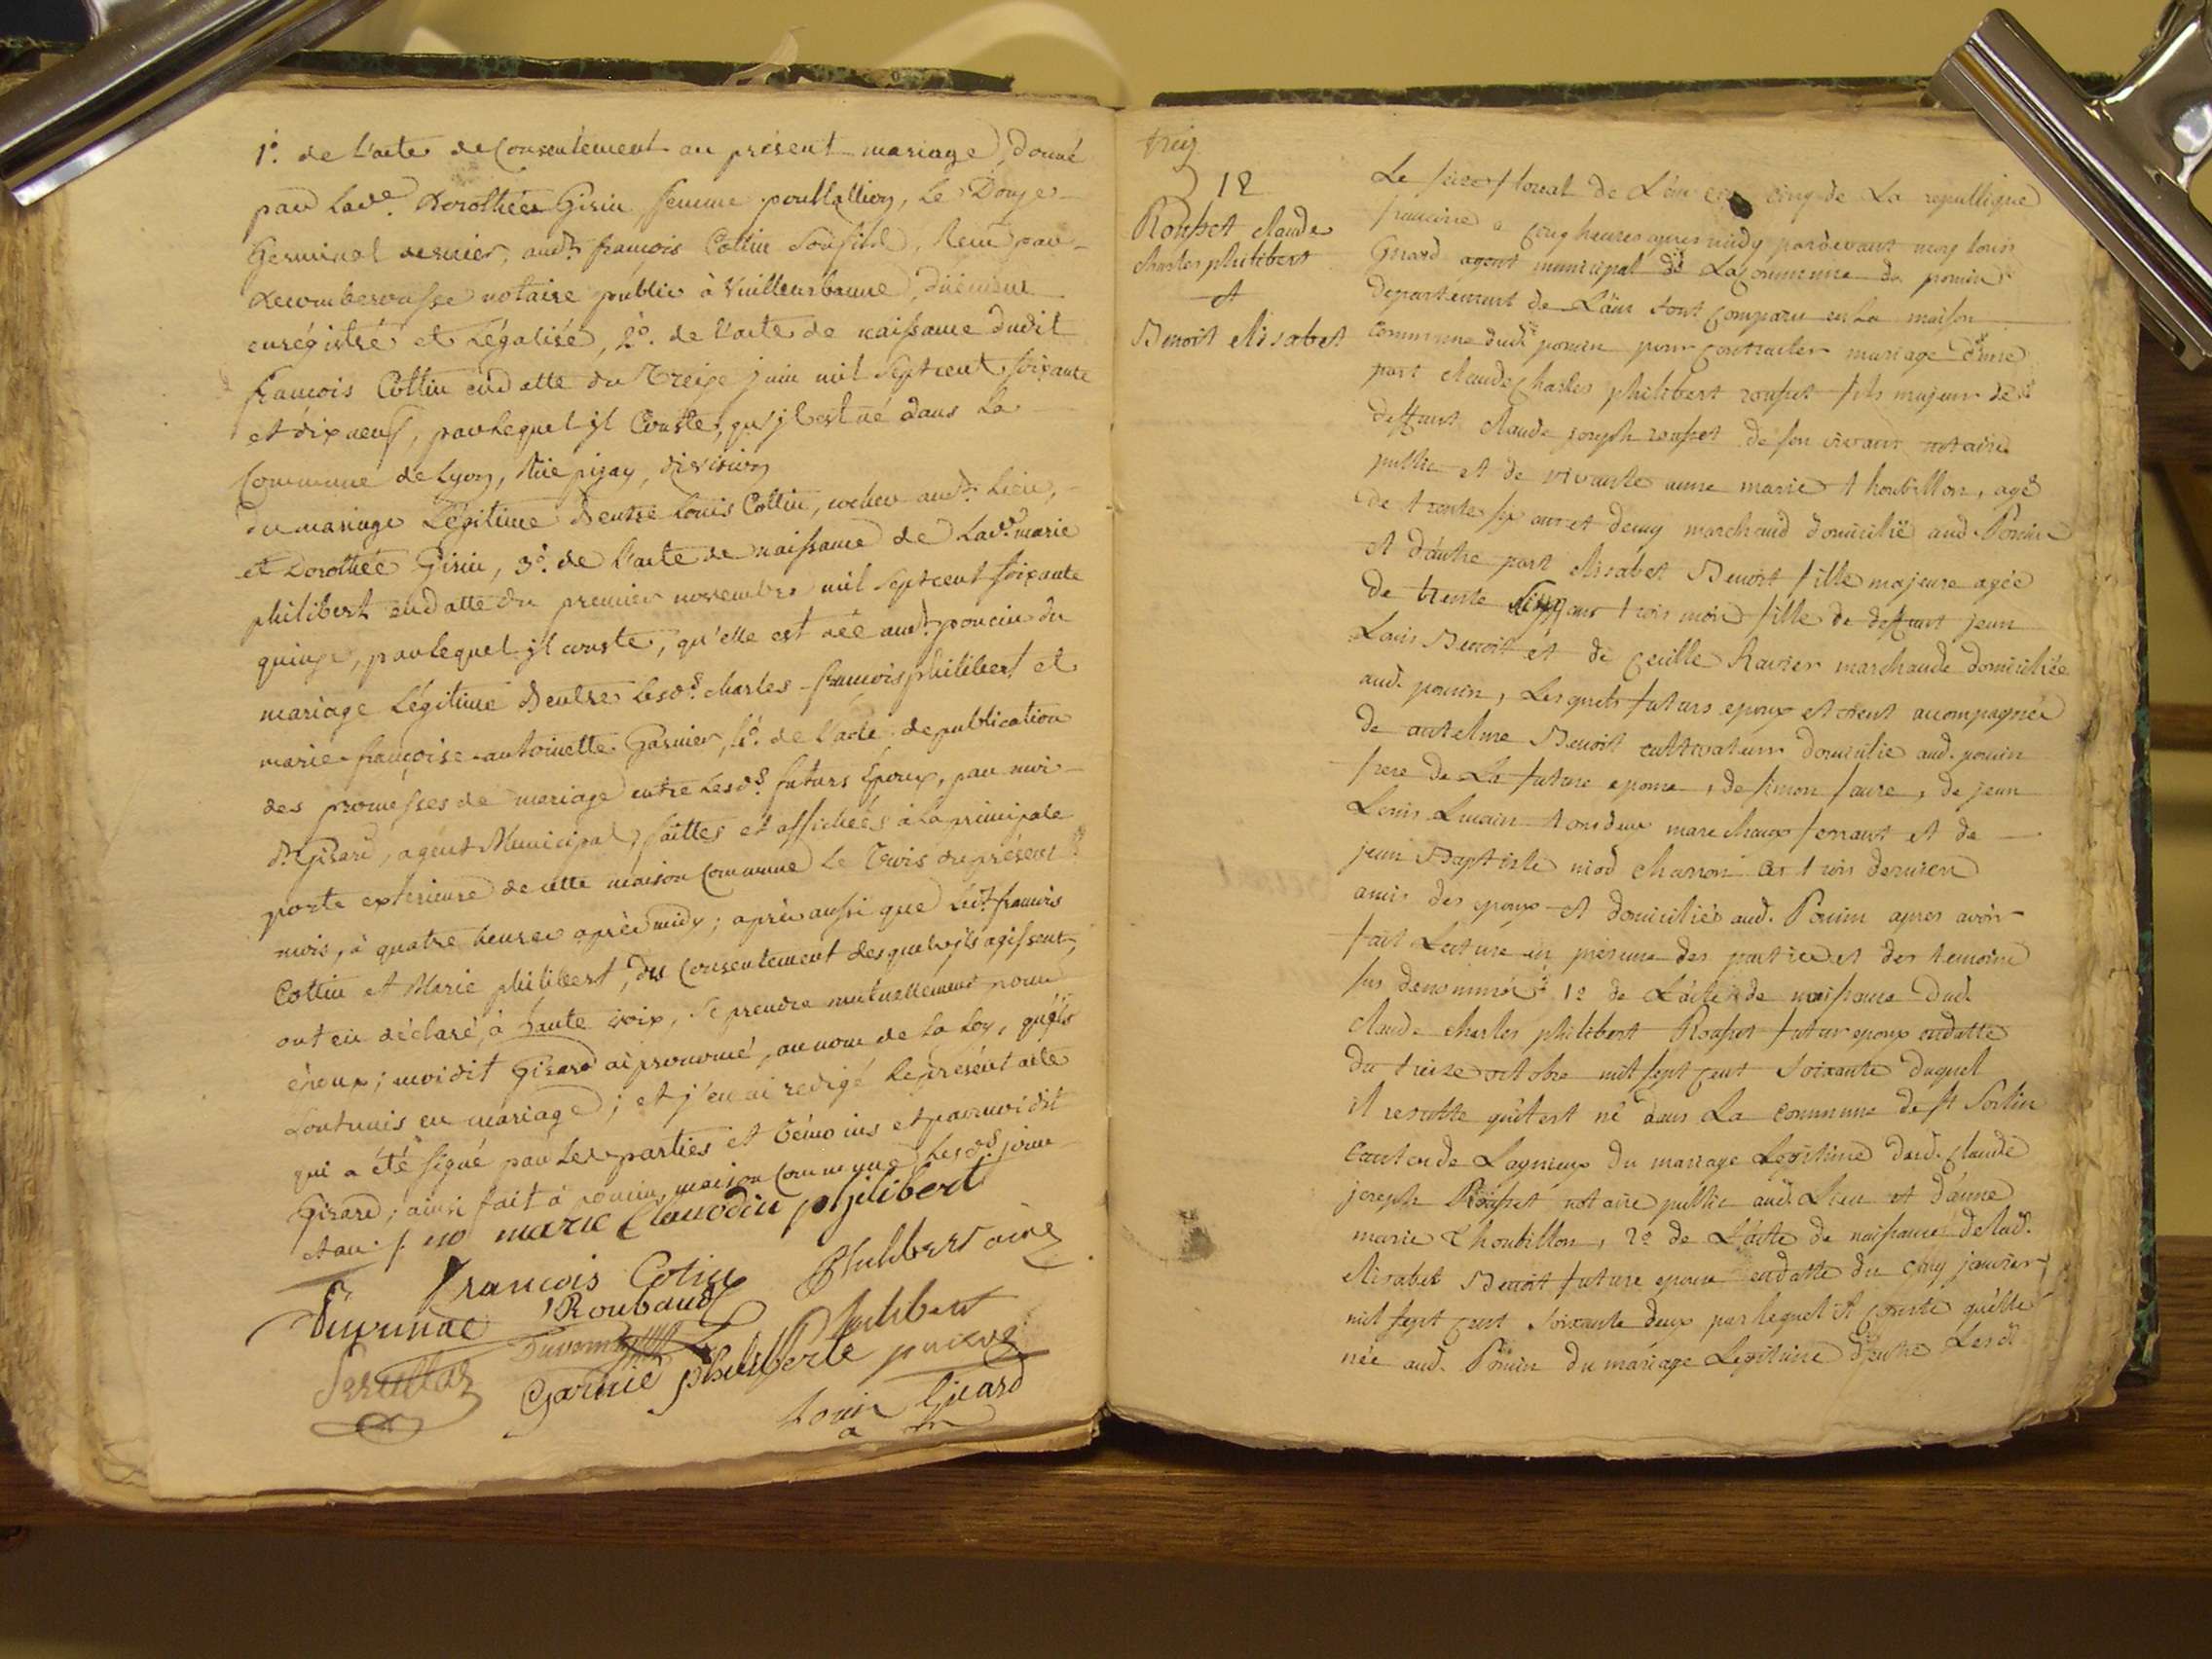 1º. de l'acte de Consentement au présent mariage, donné
par lade. Dorothée Girin, femme Poullallion, le Douze
Germinal dernier, audt. françois Cottin Son fils, Reçu par
notaire public à Villeurbanne, dûement
enrégistré et Légalisé, 2º. de l'acte de naissance dudit
françois Cottin en datte du Treize juin mil Sept cent soixante
et dix neuf, par lequel il Conste, qu'il est né dans la
Commune de Lyon, Rüe pizay, division
du mariage Légitime d'entre Louis Cottin, audt. Lieu,
et Dorothée Girin, 3º. de l'acte de naissance de lade. marie
philibert en datte du premier novembre mil Sept cent soixante
quinze, par lequel il conste, qu'elle est née audt. poncin du
mariage Légitime d'entre lesds. charles-françois philibert et
marie-françoise-antoinette Garnier, 4º. de l'acte de publication
des promesses de mariage entre lesds. futurs Epoux, par moi
dt. Girard, agent Municipal, faittes et affichées à la principale
porte exterieure de cette maison Commune le Trois du présent
mois, à quatre heures après midy; après aussi que ledt. françois
Cottin et Marie philibert, du Consentement desquels ils agissent,
ont eu déclaré, à haute voix, se prendre mutuellement pour
époux; moi dit Girard ai prononcé, au nom de la Loy, qu'ils
sont unis en mariage; et j'en ai redigé le présent acte
qui a été signé par les parties et témoins et par moi dit
Girard; ainsi fait à poncin maison commune lesds. jour
et an.
marie Claudin philibert
francois Cotin
Philibert ainé
Roubaud
Philibert
Garnie philiberte
Louis Girard
a m
18
Rousset claude
charles philibert
et
Benoit elisabet
Le seize floreal de L'an cinq de La republique
francoise a cinq heures apres midy pardevant moy louis
Girard agent municipal de La commune de poncin
departement de L'ain sont comparu en La maison
commune dudt. poncin pour contracter mariage d'une
part claude charles philibert rousset fils majeur de
deffunt claude joseph rousset de son vivant notaire
public et de vivante anne marie thoubillon, agé
de trente six ans et demy marchand domicilié aud. Poncin
et d'autre part elisabet Benoit fille majeure agée
de trente ans trois mois fille de deffunt jean
Louis Benoit et de cecille Ravier marchande domiciliée
aud. poncin, Lesquels futurs epoux etoient accompagnés
de antelme Benoit cultivateur domicilié aud. poncin
frere de La future epouse, de simon faure, de jean
Louis tous deux marechaux ferrant et de
jean Baptiste niod charron les trois derniers
amis des epoux et domiciliés aud. Poncin apres avoir
fait Lecture en presence des parties et des temoins
sus denommés 1º de L'acte de naissance dud.
claude charles philibert Rousset futur epoux en datte
du treize octobre mil sept cent soixante duquel
il resulte qu'il est né dans La commune de st Sorlin
canton de Lagnieux du mariage Legitime dud. claude
joseph Rousset notaire public aud. Lieu et d'anne
marie thoubillon, 2º de L'acte de naissance de lad.
elisabet Benoit future epouse en datte du cinq janvier
mil sept cent soixante deux par lequel il conste qu'elle
née aud. Poncin du mariage Legitime d'entre Lesd